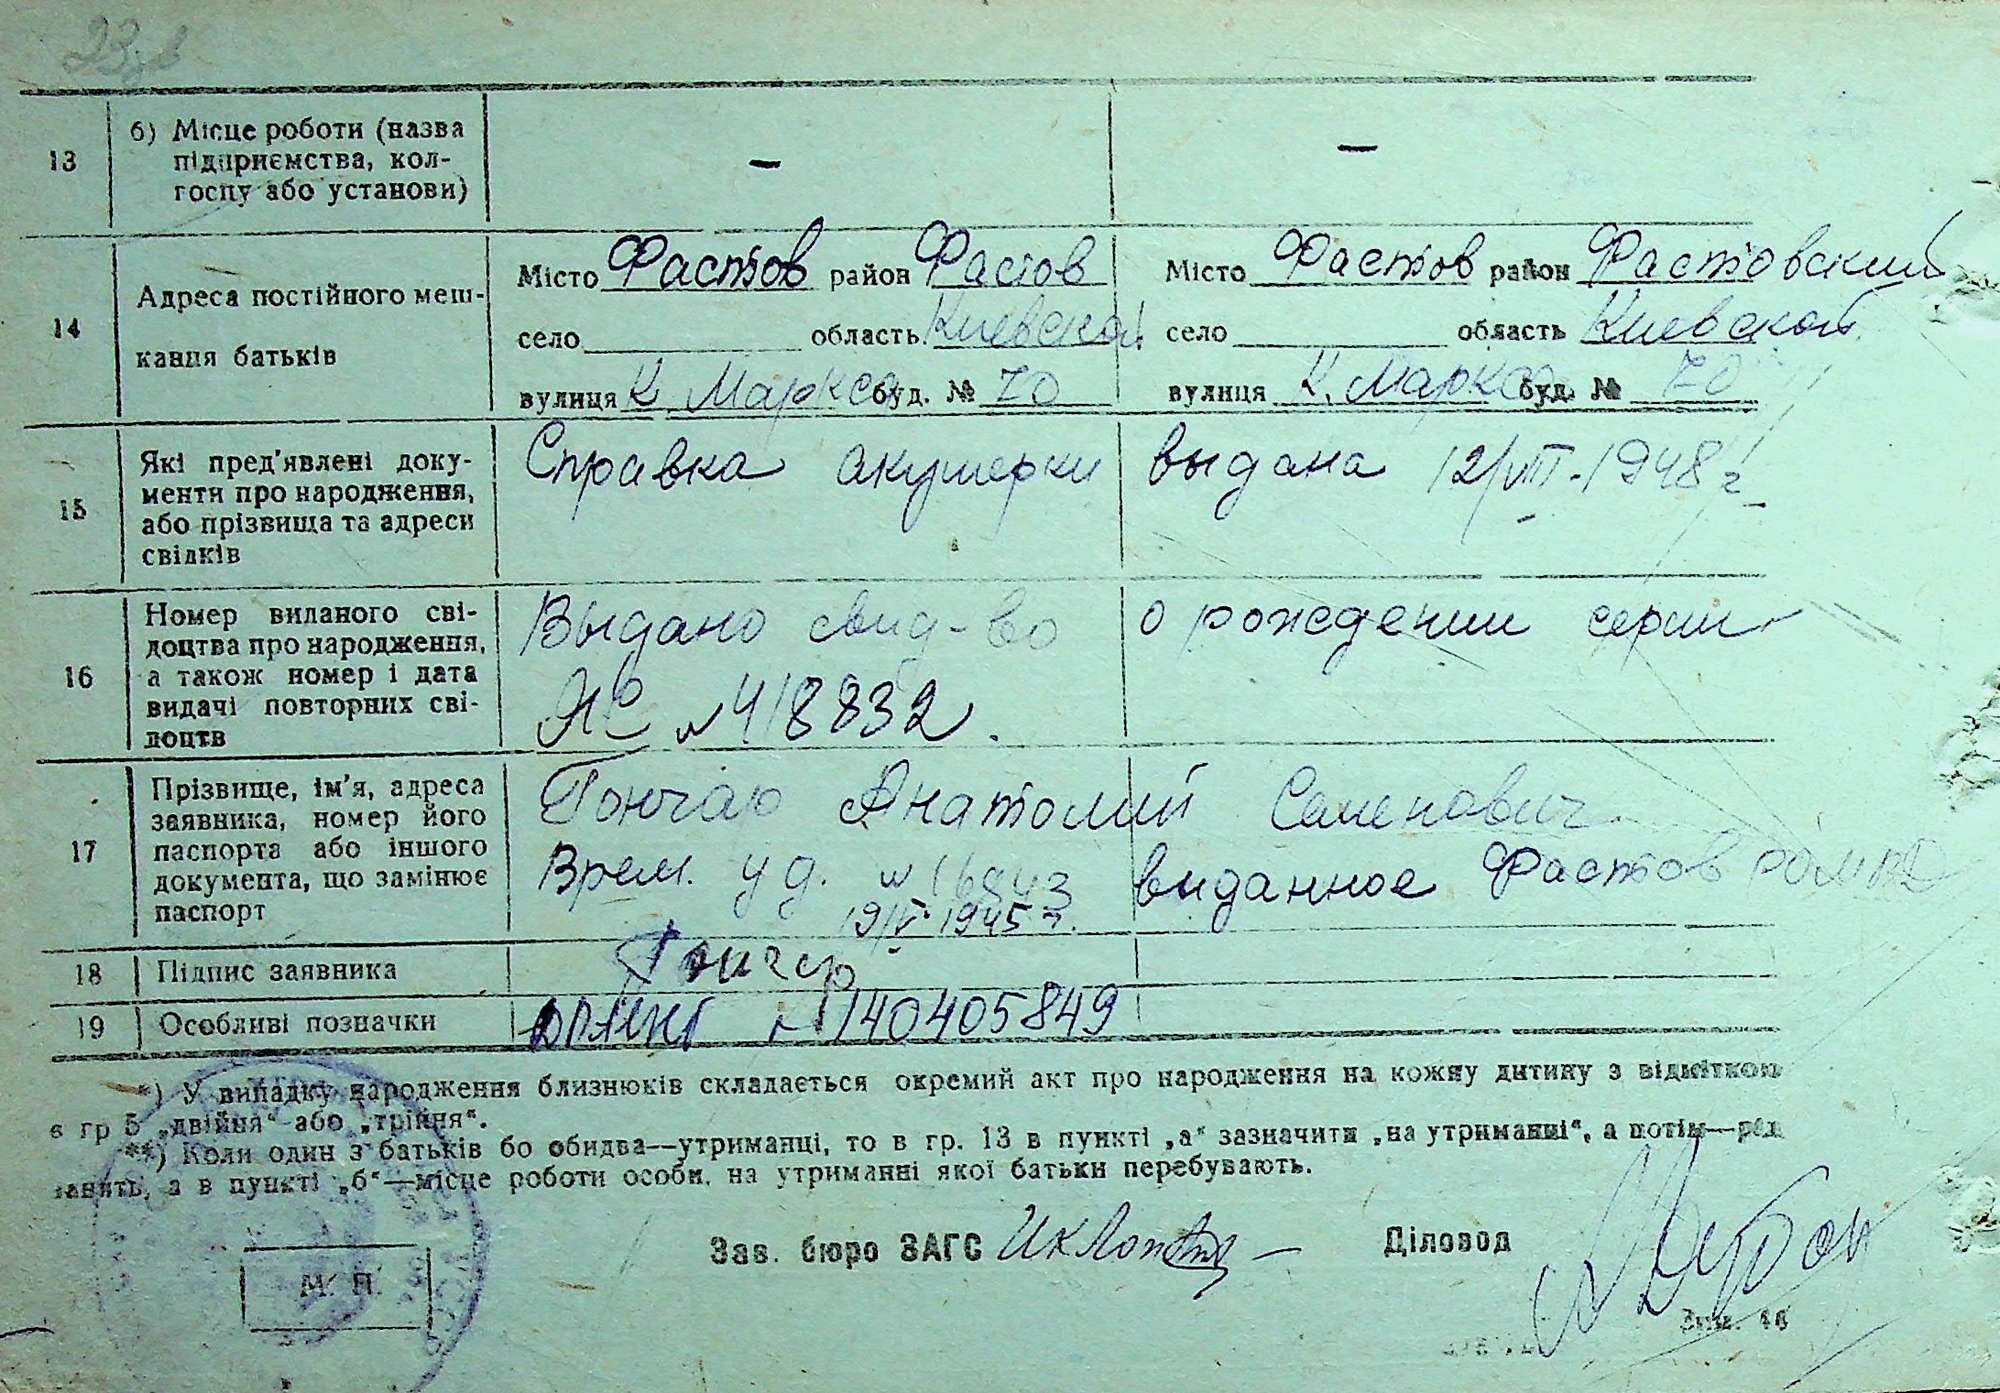 13 б) Місце роботи (назва
підприємства, кол-
госпу або установи) — —
14 Адреса постійного меш-
кання батьків
Місто Фастов район Фастов
село область Киевской
вулиця К. Маркса буд. № 70
Місто Фастов район Фастовский
село область Киевской
вулиця К. Маркса буд. № 70
15 Які пред'явлені доку-
менти про народження,
або прізвища та адреси
свідків
Справка акушерки выдана 12/VIII-1948 г.
16 Номер виданого сві-
доцтва про народження,
а також номер і дата
видачі повторних сві-
доцтв
Выдано свид-во о рождении серии
№ 418832.
17 Прізвище, ім'я, адреса
заявника, номер його
паспорта або іншого
документа, що замінює
паспорт
Гончар Анатолий Семенович
Врем. уд. № 16843 выданное Фастов
19/V-1945 г.
18 Підпис заявника Гончар
19 Особливі позначки 140405849
*) У випадку народження близнюків складається окремий акт про народження на кожну дитину з відміткою
в гр 5 „двійня“ або „трійня“.
**) Коли один з батьків бо обидва—утриманці, то в гр. 13 в пункті „а“ зазначити „на утриманні“, а потім—рід
занять, а в пункті „б“—місце роботи особи, на утриманні якої батьки перебувають.
Зав. бюро ЗАГС
Діловод
М. П.